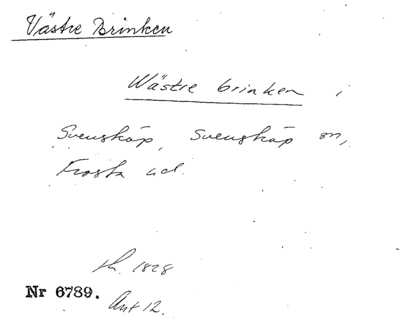 Västre Brinken
Wästre brinken i
Svensköp, Svensköp sn,
Frosta hd.
sk. 1828
Nr 6789. Akt 12.